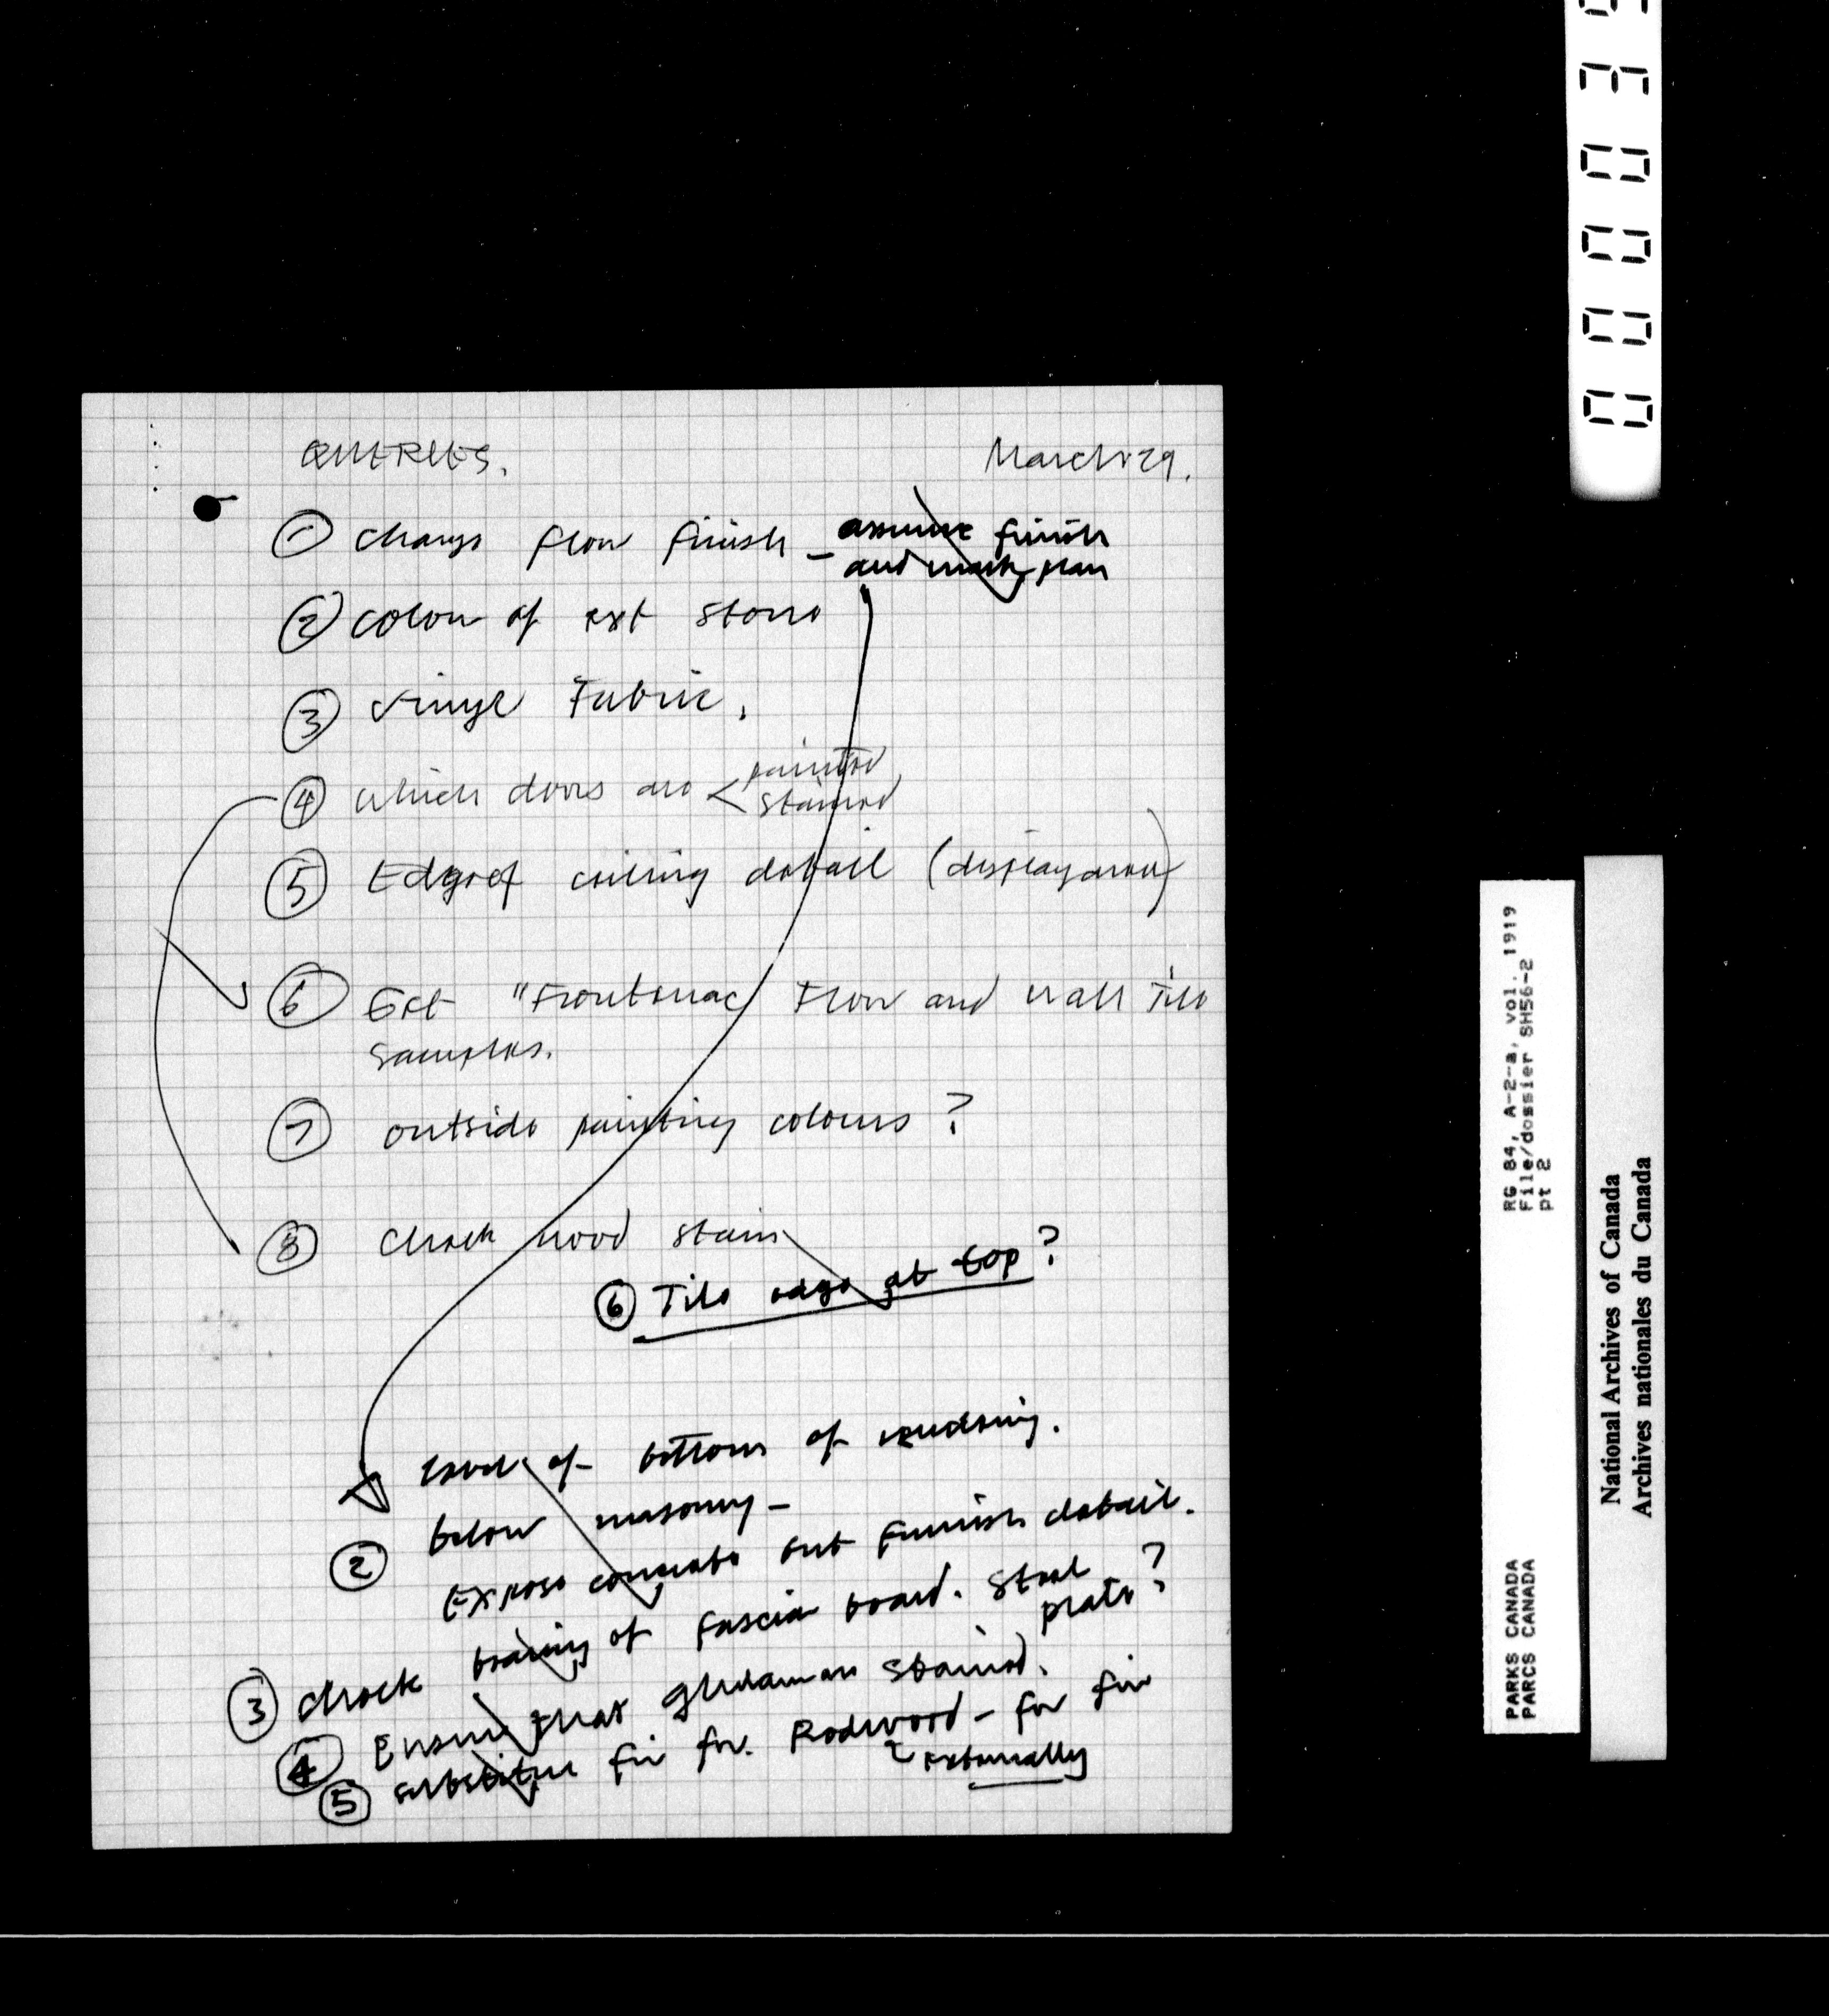 QUERIES.
March 29.
① Change floor finish - assume finish
and mark plan
② colour of ext stone
③ Vinyl Fabric.
④ which doors are < painted
stained
⑤ Edge of ceiling detail (display area)
⑥ Get "Frontenac Floor and wall Tile
samples.
⑦ outside painting colours ?
⑧ Check wood stain
⑥ Tile edge at top ?
level of bottom of
② below masonry -
Expose concrete but furnish detail.
③ Check bearing of fascia board. Steel
plate ?
④ Ensure that glulam stained.
⑤ substitute fir for Redwood - for fir
externally
RG 84, A-2-a, vol. 1919
File/dossier SH56-2
pt 2
PARKS CANADA
PARCS CANADA
National Archives of Canada
Archives nationales du Canada